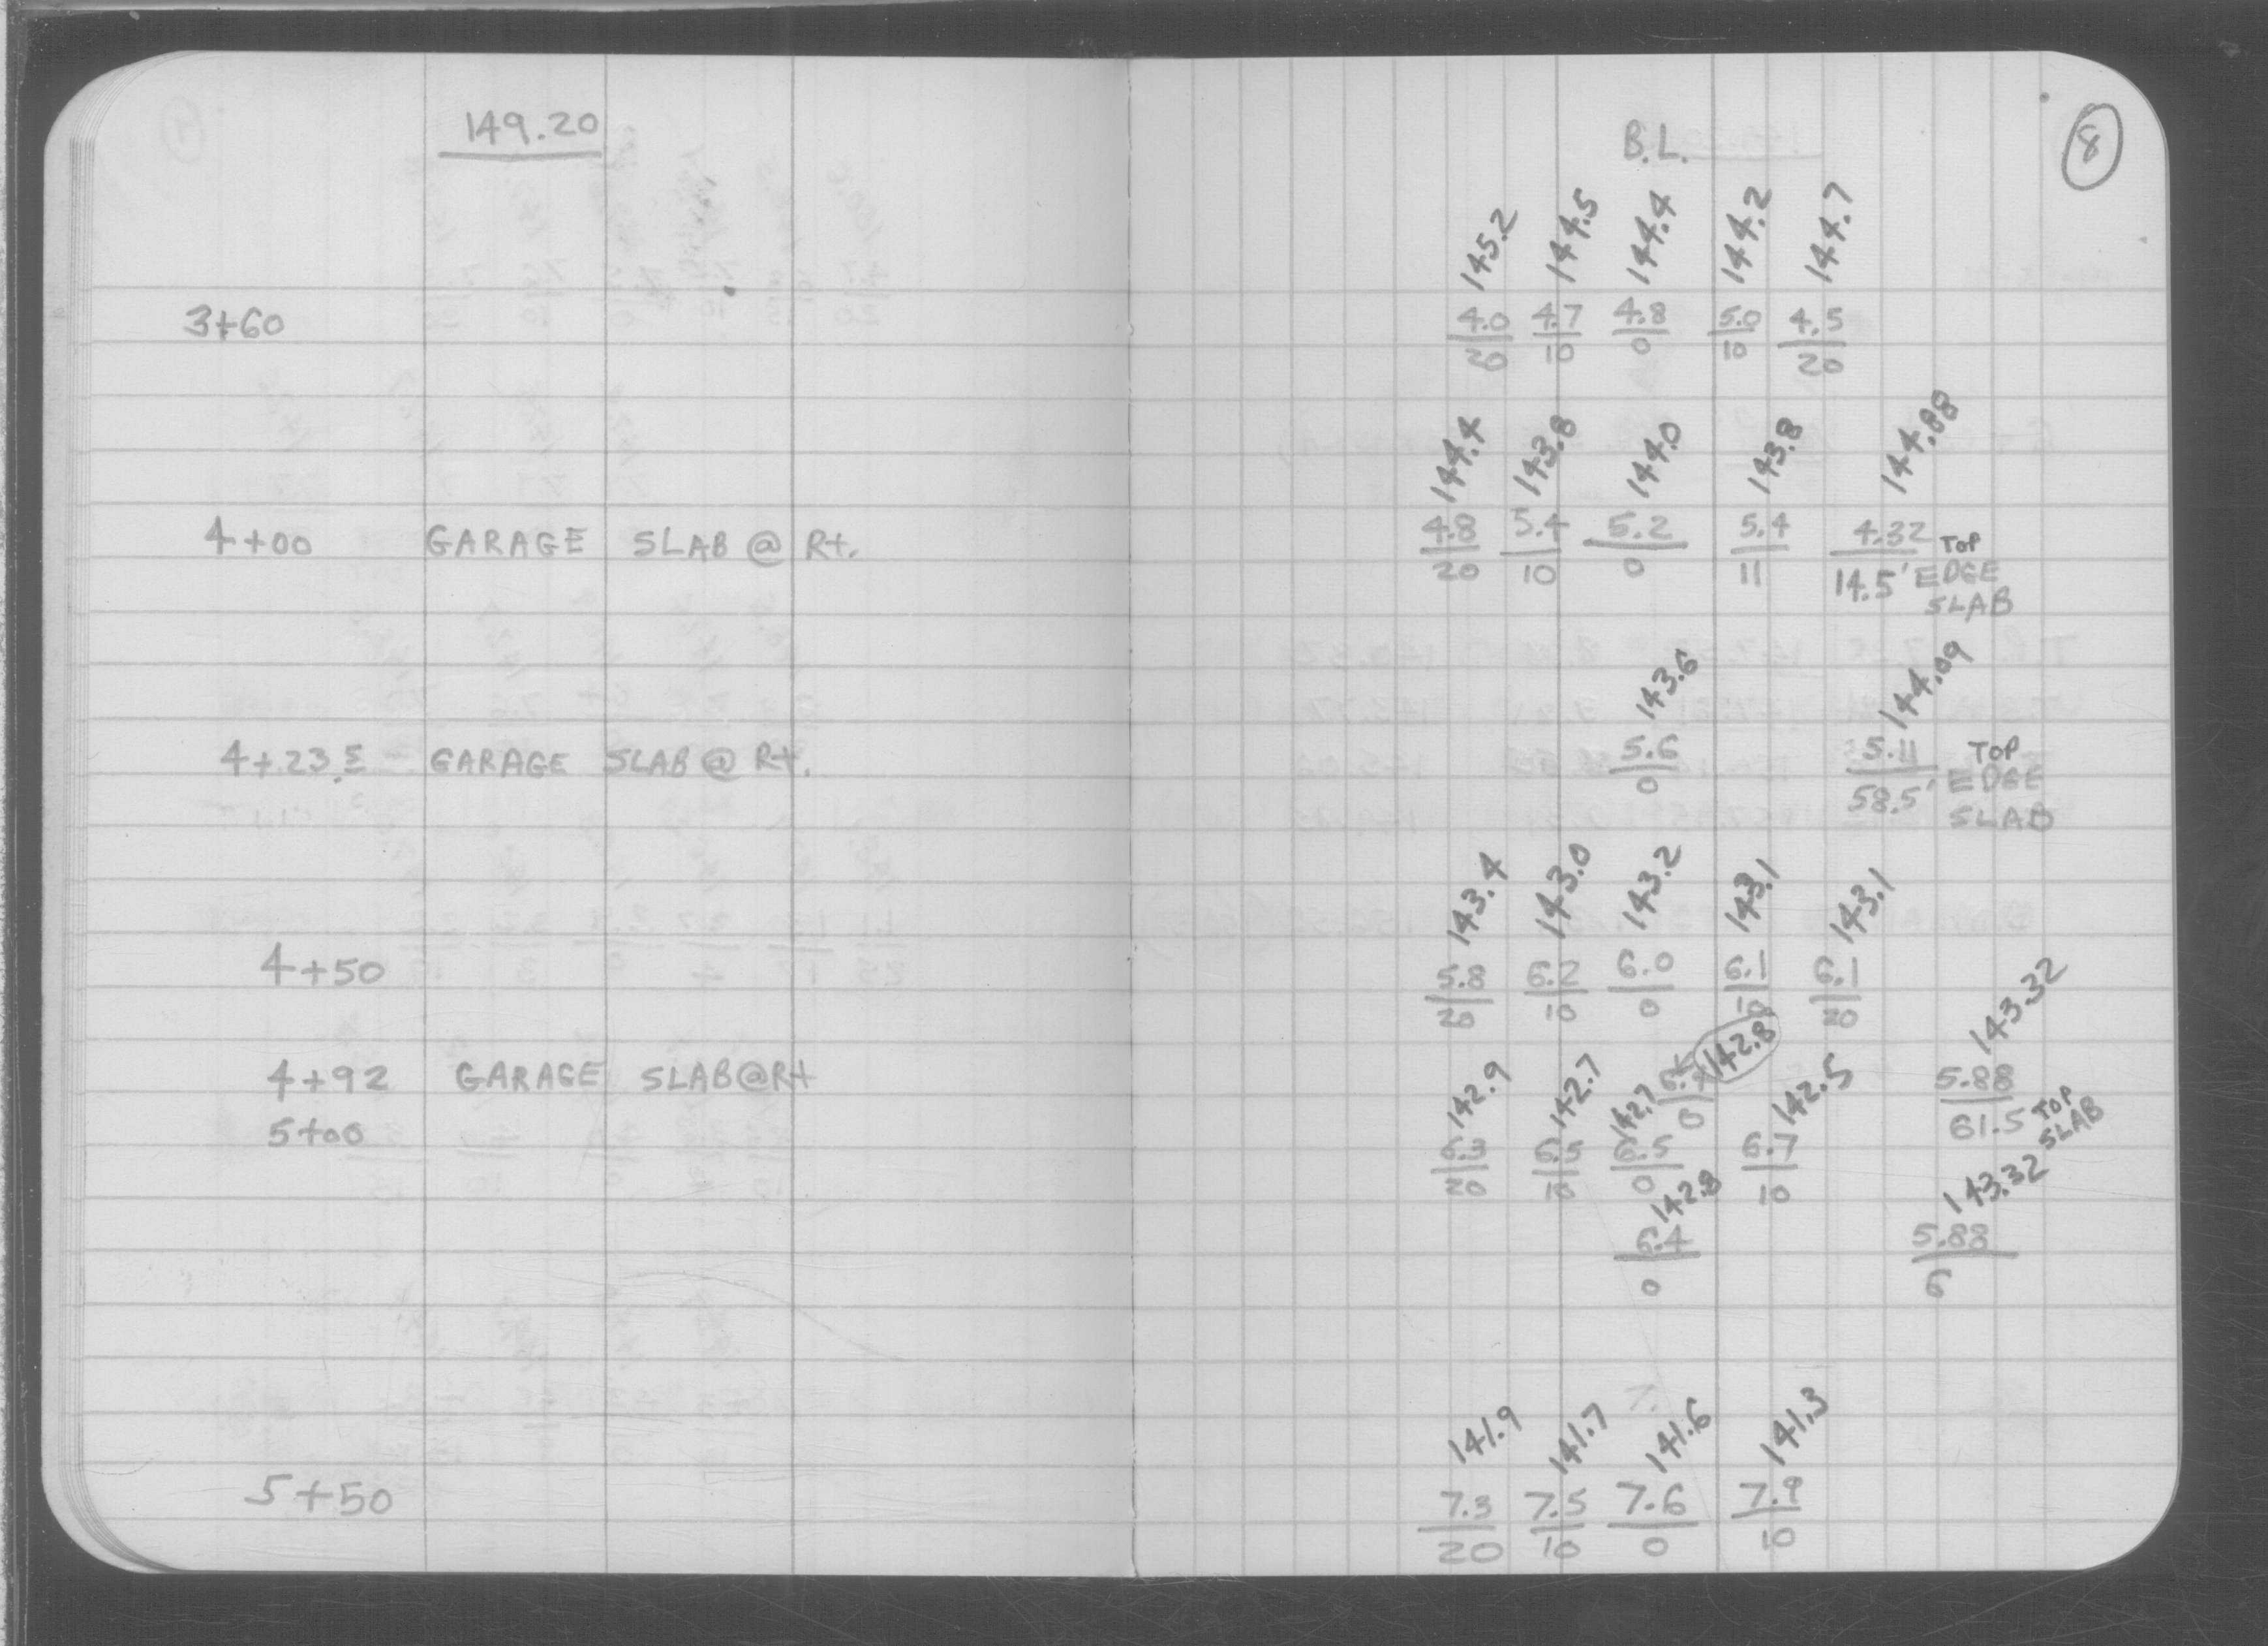 149.20
B.L.
8
145.2 144.5 144.4 144.2 144.7
3+60 4.0 4.7 4.8 5.0 4.5
20 10 0 10 20
144.4 143.8 144.0 143.8 144.88
4+00 GARAGE SLAB @ Rt. 4.8 5.4 5.2 5.4 4.32 TOP
20 10 0 11 14.5' EDGE
SLAB
143.6 144.09
4+23.5 GARAGE SLAB @ Rt. 5.6 5.11 TOP
0 58.5' EDGE
SLAB
143.4 143.0 143.2 143.1 143.1
4+50 5.8 6.2 6.0 6.1 6.1
20 10 0 10 20
142.8 143.32
4+92 GARAGE SLAB @ Rt 6.4 5.88
0 61.5 TOP
SLAB
142.9 142.7 142.7 142.5
5+00 6.3 6.5 6.5 6.7
20 10 0 10
142.8 143.32
6.4 5.88
0 6
141.9 141.7 141.6 141.3
5+50 7.3 7.5 7.6 7.9
20 10 0 10